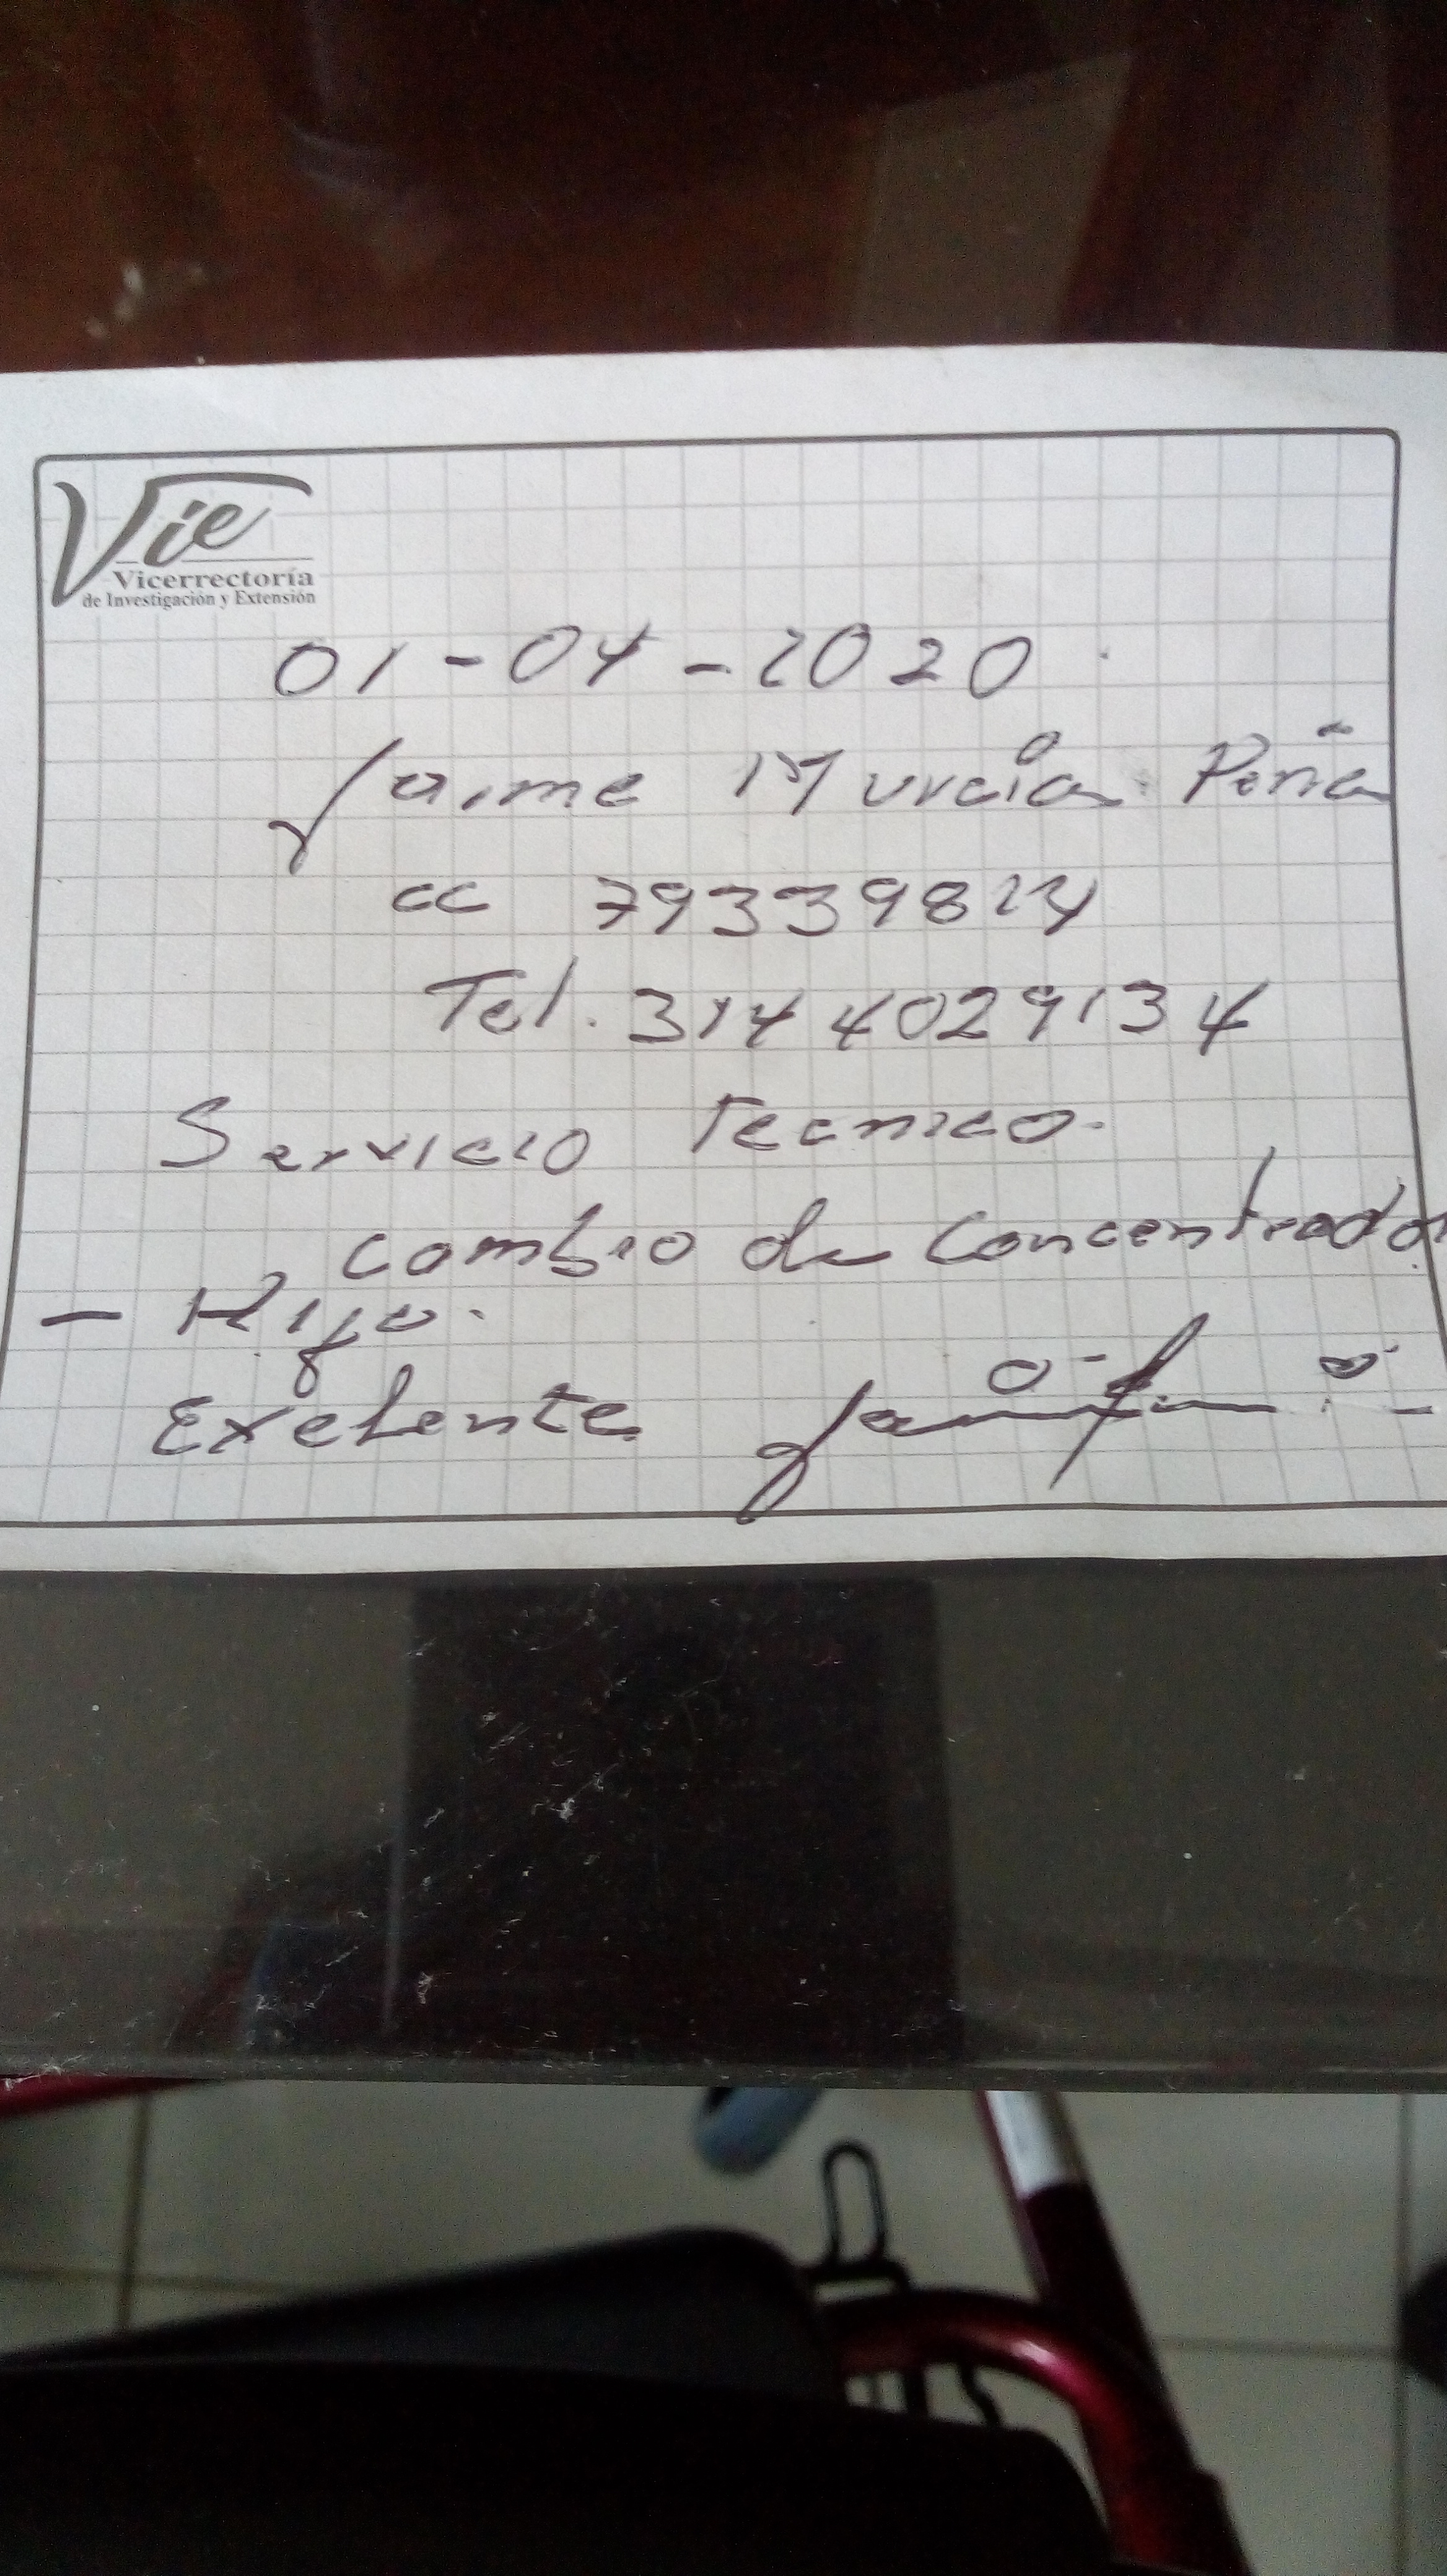 Vie
Vicerrectoría
de Investigación y Extensión
01-04-2020
Jaime Murcia Peña
cc 79339824
Tel. 3144029134
Servicio Tecnico.
cambio de Concentrador
- Hijo.
Exelente